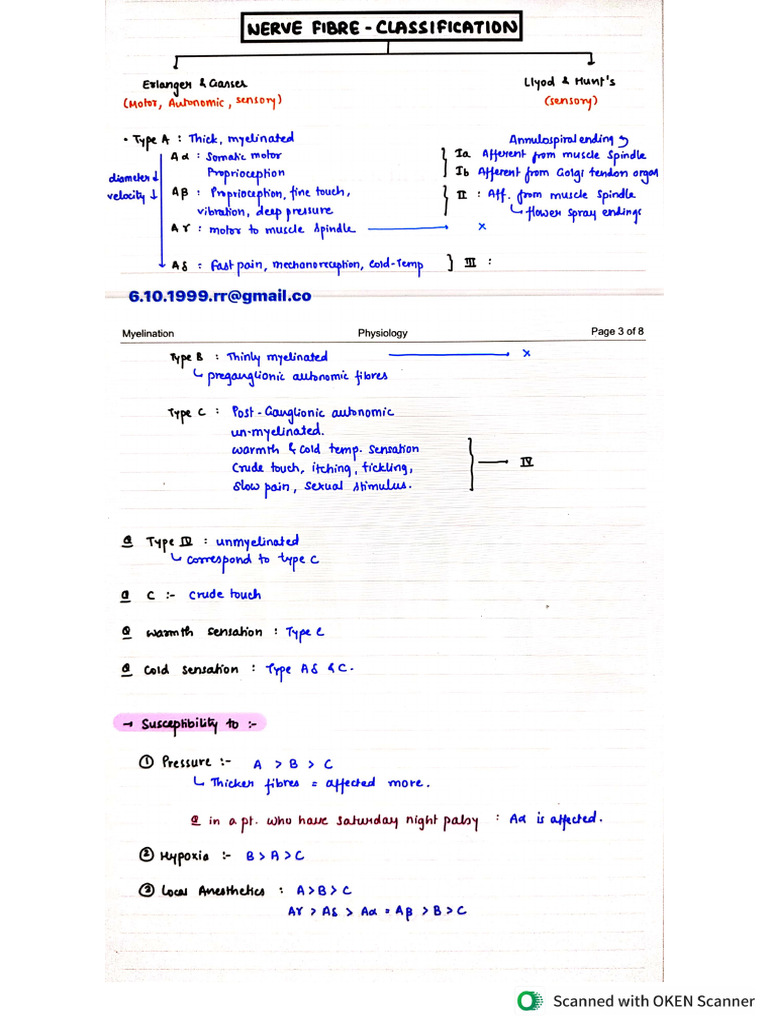 NERVE FIBRE - CLASSIFICATION
Erlanger & Gasser
(Motor, Autonomic, sensory)
Llyod & Hunt's
(sensory)
• Type A : Thick, myelinated
diameter ↓
velocity ↓
Aα : Somatic motor
Proprioception
Aβ : Proprioception, fine touch,
vibration, deep pressure
Aγ : motor to muscle Spindle → x
Aδ : Fast pain, mechanoreception, Cold-Temp } III :
Annulospiral ending
Ia Afferent from muscle Spindle
Ib Afferent from Golgi tendon organ
II : Aff. from muscle Spindle
flower spray endings
6.10.1999.rr@gmail.co
Myelination Physiology Page 3 of 8
Type B : Thinly myelinated → x
preganglionic autonomic fibres
Type C : Post-Ganglionic autonomic
un-myelinated.
warmth & cold temp. sensation
Crude touch, itching, tickling,
slow pain, sexual stimulus.
IV
Q Type IV : unmyelinated
correspond to type C
Q C :- crude touch
Q warmth sensation : Type C
Q Cold sensation : Type Aδ & C.
→ Susceptibility to :-
① Pressure :- A > B > C
Thicker fibres = affected more.
Q in a pt. who have saturday night palsy : Aα is affected.
② Hypoxia :- B > A > C
③ Local Anesthetics : A > B > C
Aγ > Aδ > Aα = Aβ > B > C
Scanned with OKEN Scanner